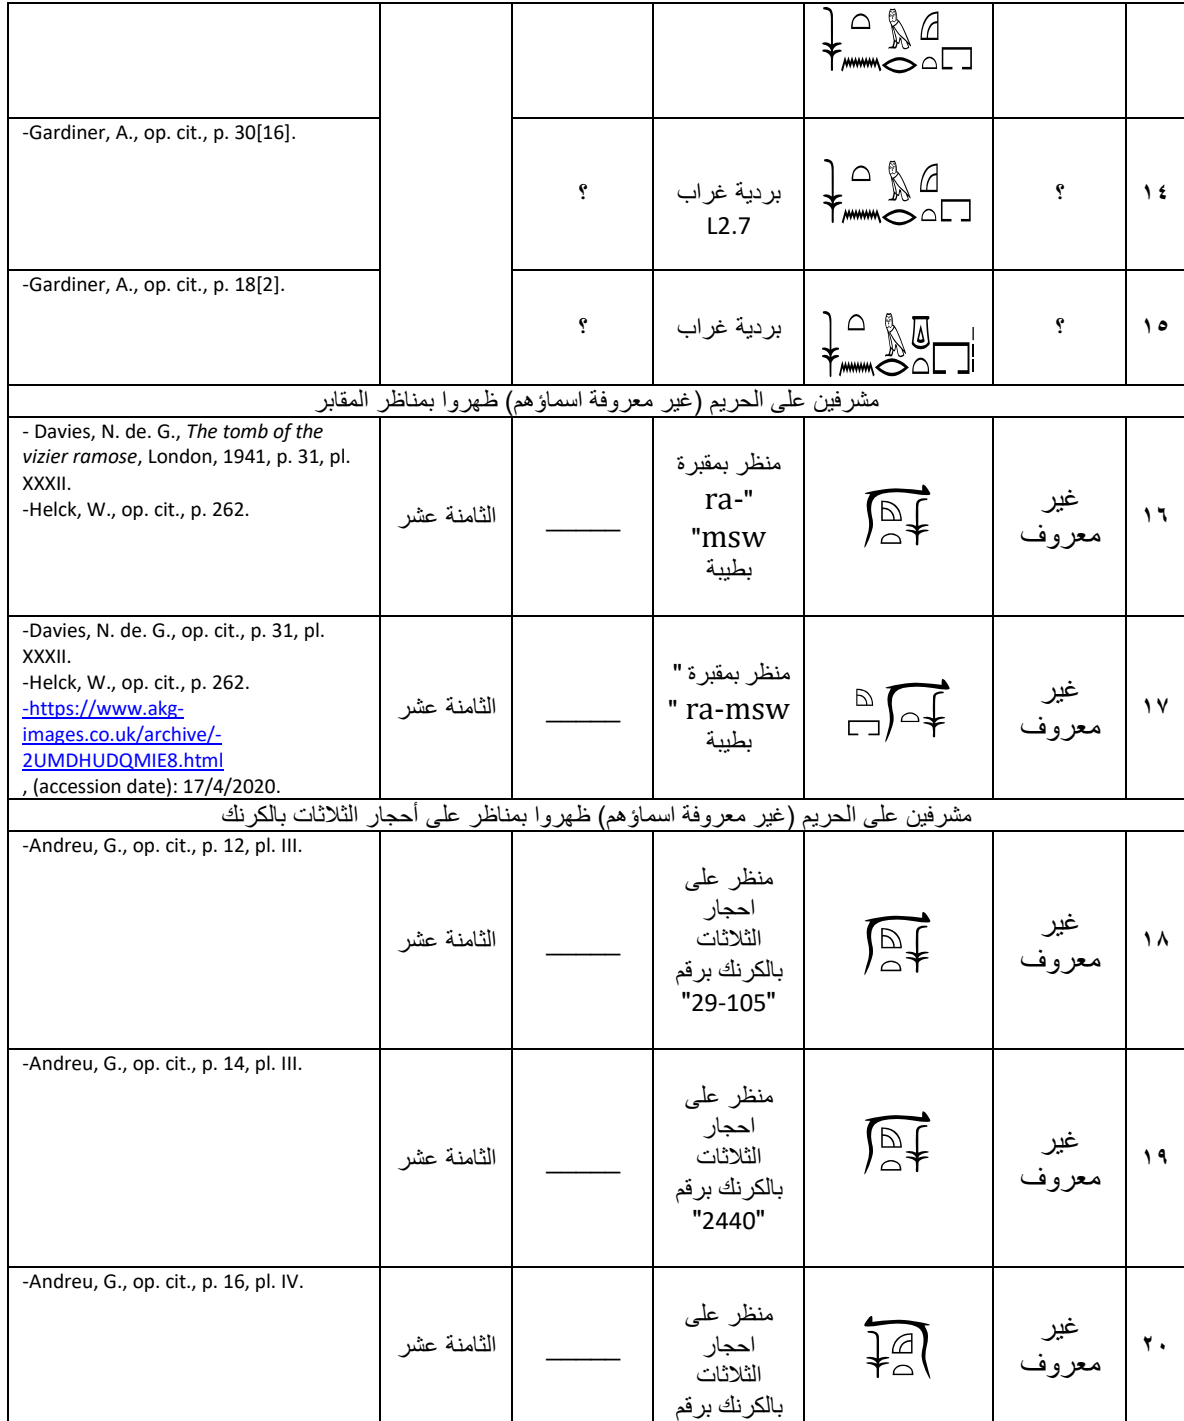 -Gardiner, A., op. cit., p. 30[16].
؟
بردية غراب
L2.7
؟
١٤
-Gardiner, A., op. cit., p. 18[2].
؟
بردية غراب
؟
١٥
مشرفين على الحريم (غير معروفة اسماؤهم) ظهروا بمناظر المقابر
- Davies, N. de. G., The tomb of the
vizier ramose, London, 1941, p. 31, pl.
XXXII.
-Helck, W., op. cit., p. 262.
الثامنة عشر
منظر بمقبرة
ra-"
"msw
بطيبة
غير
معروف
١٦
-Davies, N. de. G., op. cit., p. 31, pl.
XXXII.
-Helck, W., op. cit., p. 262.
-https://www.akg-
images.co.uk/archive/-
2UMDHUDQMIE8.html
, (accession date): 17/4/2020.
الثامنة عشر
منظر بمقبرة "
" ra-msw
بطيبة
غير
معروف
١٧
مشرفين على الحريم (غير معروفة اسماؤهم) ظهروا بمناظر على أحجار الثلاثات بالكرنك
-Andreu, G., op. cit., p. 12, pl. III.
الثامنة عشر
منظر على
احجار
الثلاثات
بالكرنك برقم
"29-105"
غير
معروف
١٨
-Andreu, G., op. cit., p. 14, pl. III.
الثامنة عشر
منظر على
احجار
الثلاثات
بالكرنك برقم
"2440"
غير
معروف
١٩
-Andreu, G., op. cit., p. 16, pl. IV.
الثامنة عشر
منظر على
احجار
الثلاثات
بالكرنك برقم
غير
معروف
٢٠